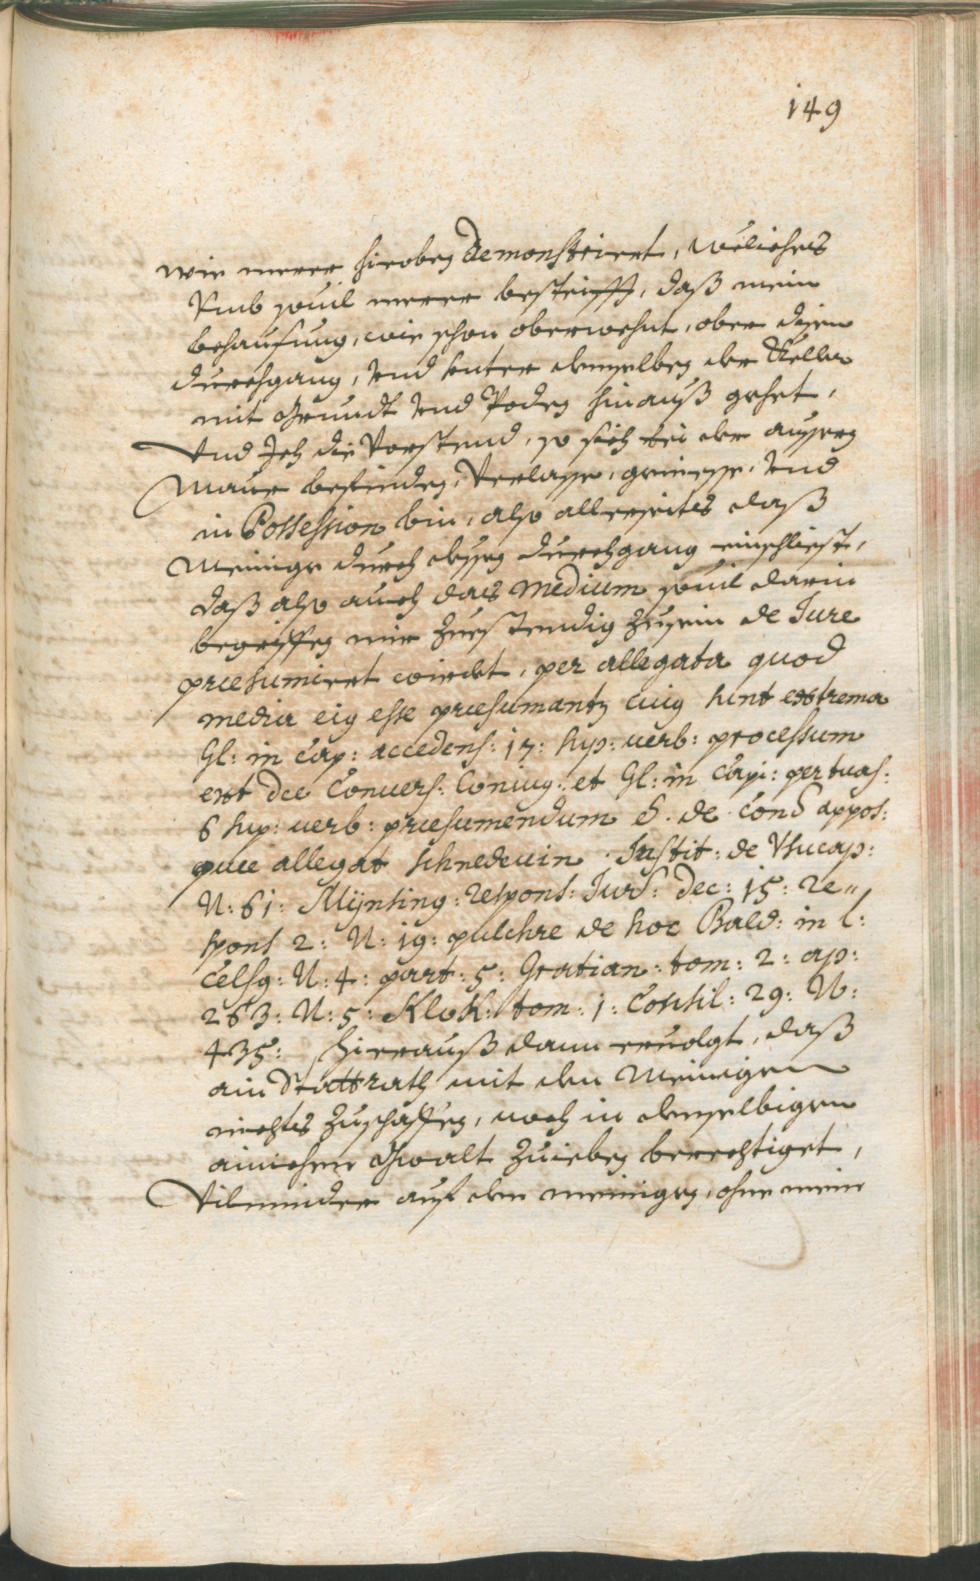 149
wie merer hieoben demonstriert, weliches
Vmb souil merer besteifft, daß mein
behausung, wie schon oberwehnt, ober disem
durchgang, vnd vnter demselben der Keller
mit Grundt vnd Poden hinauß gehet,
Vnd Jch die Vorstend, so sich bei der aussern
Maur befinden, Verlasse, geniesse, vnd
in Possession bin, also allerseits daß
Meinige durch dissen durchgang einschliest,
daß also auch das Medium souil darin
begriffen mir Zuestendig Zusein de Jure
præsumiert wierdt, per allegata quod
media eius esse præsumantur cuius sunt extrema
Gl: in cap: accedens: 17: sup: verb: processum
ext de Convers. Coniug. et Gl: in Capi: pertuas:
6 sup: verb: præsumendum 6. de Cond appos:
quæ allegat schnedevin. Instit: de Vsucap:
N: 61: Mÿnsing: respons: Jurs: Dec: 15: re„
spons 2: N: 19: pulchre de hoc Bald: in l:
Celsus: N: 4: part: 5: Gratian: tom: 2: ap:
263: N: 5: Klok: tom: 1: Consil: 29: N:
435: hierauß dann ervolgt, daß
ain Stattrath mit dem Meinigen
nichts Zuschaffen, noch in demselbigen
ainichen Gwalt Zuieben berechtiget,
Vilminder auf dem meinigen, ohne mein